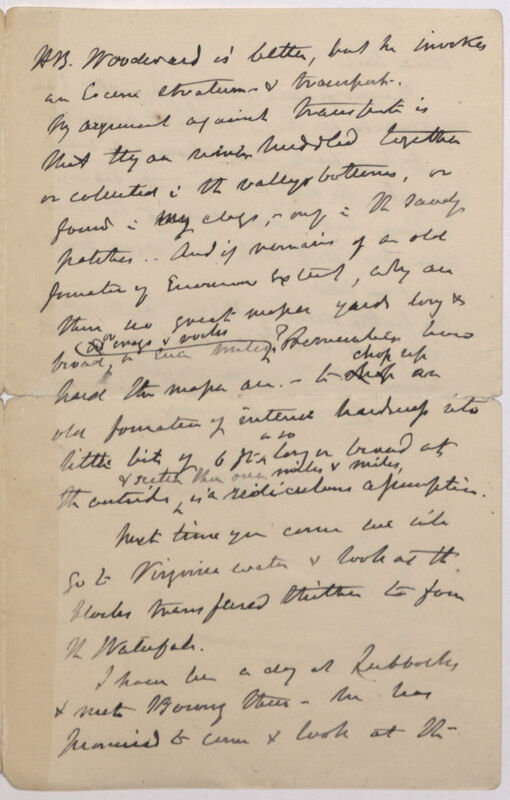 HB. Woodward is better, but he invokes
an Eocene stratum & transport.
My argument against transport is
that they are never huddled together
or collected in the valleys bottoms, or
found in clays, - only in the sandy
patches .. And if remains of an old
formation of Enormous Extent, why are
there no great masses yards long &
or crags & rocks
broad, or even miles? Remember how
hard the masses are. - to chop up an
old formation of intense hardness into
little bits of 6 ft or so long or broad at
& scatter them over miles & miles,
the outside, is a rediculous assumption.
Next time you come we will
go to Virginia water & look at the
blocks transferred thither to form
the Waterfall.
I have been a day at Lubbocks
& met Bonney there - he has
promised to come & look at the